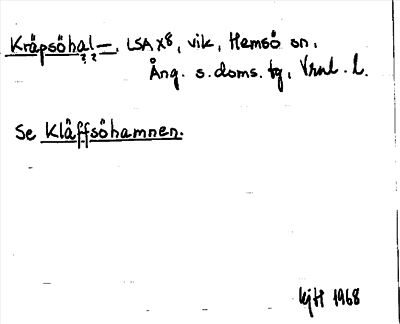 Kräpsöhal–, LSA X8, vik, Hemsö sn.
? ?
Ång. s. doms. tg, Vrnl. l.
Se Kläffsöhamnen.
KjH 1968